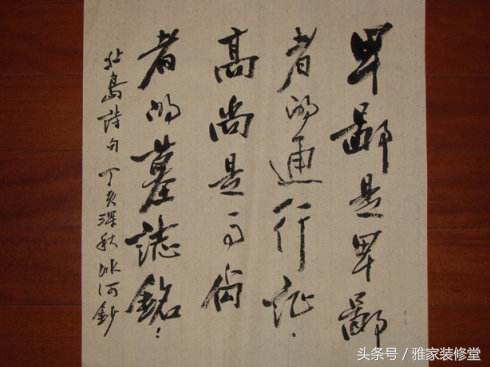 卑鄙是卑鄙
者的通行证:
高尚是高尚
者的墓誌銘:
北島詩句 丁亥深秋 冰河鈔
头条号／雅家装修堂